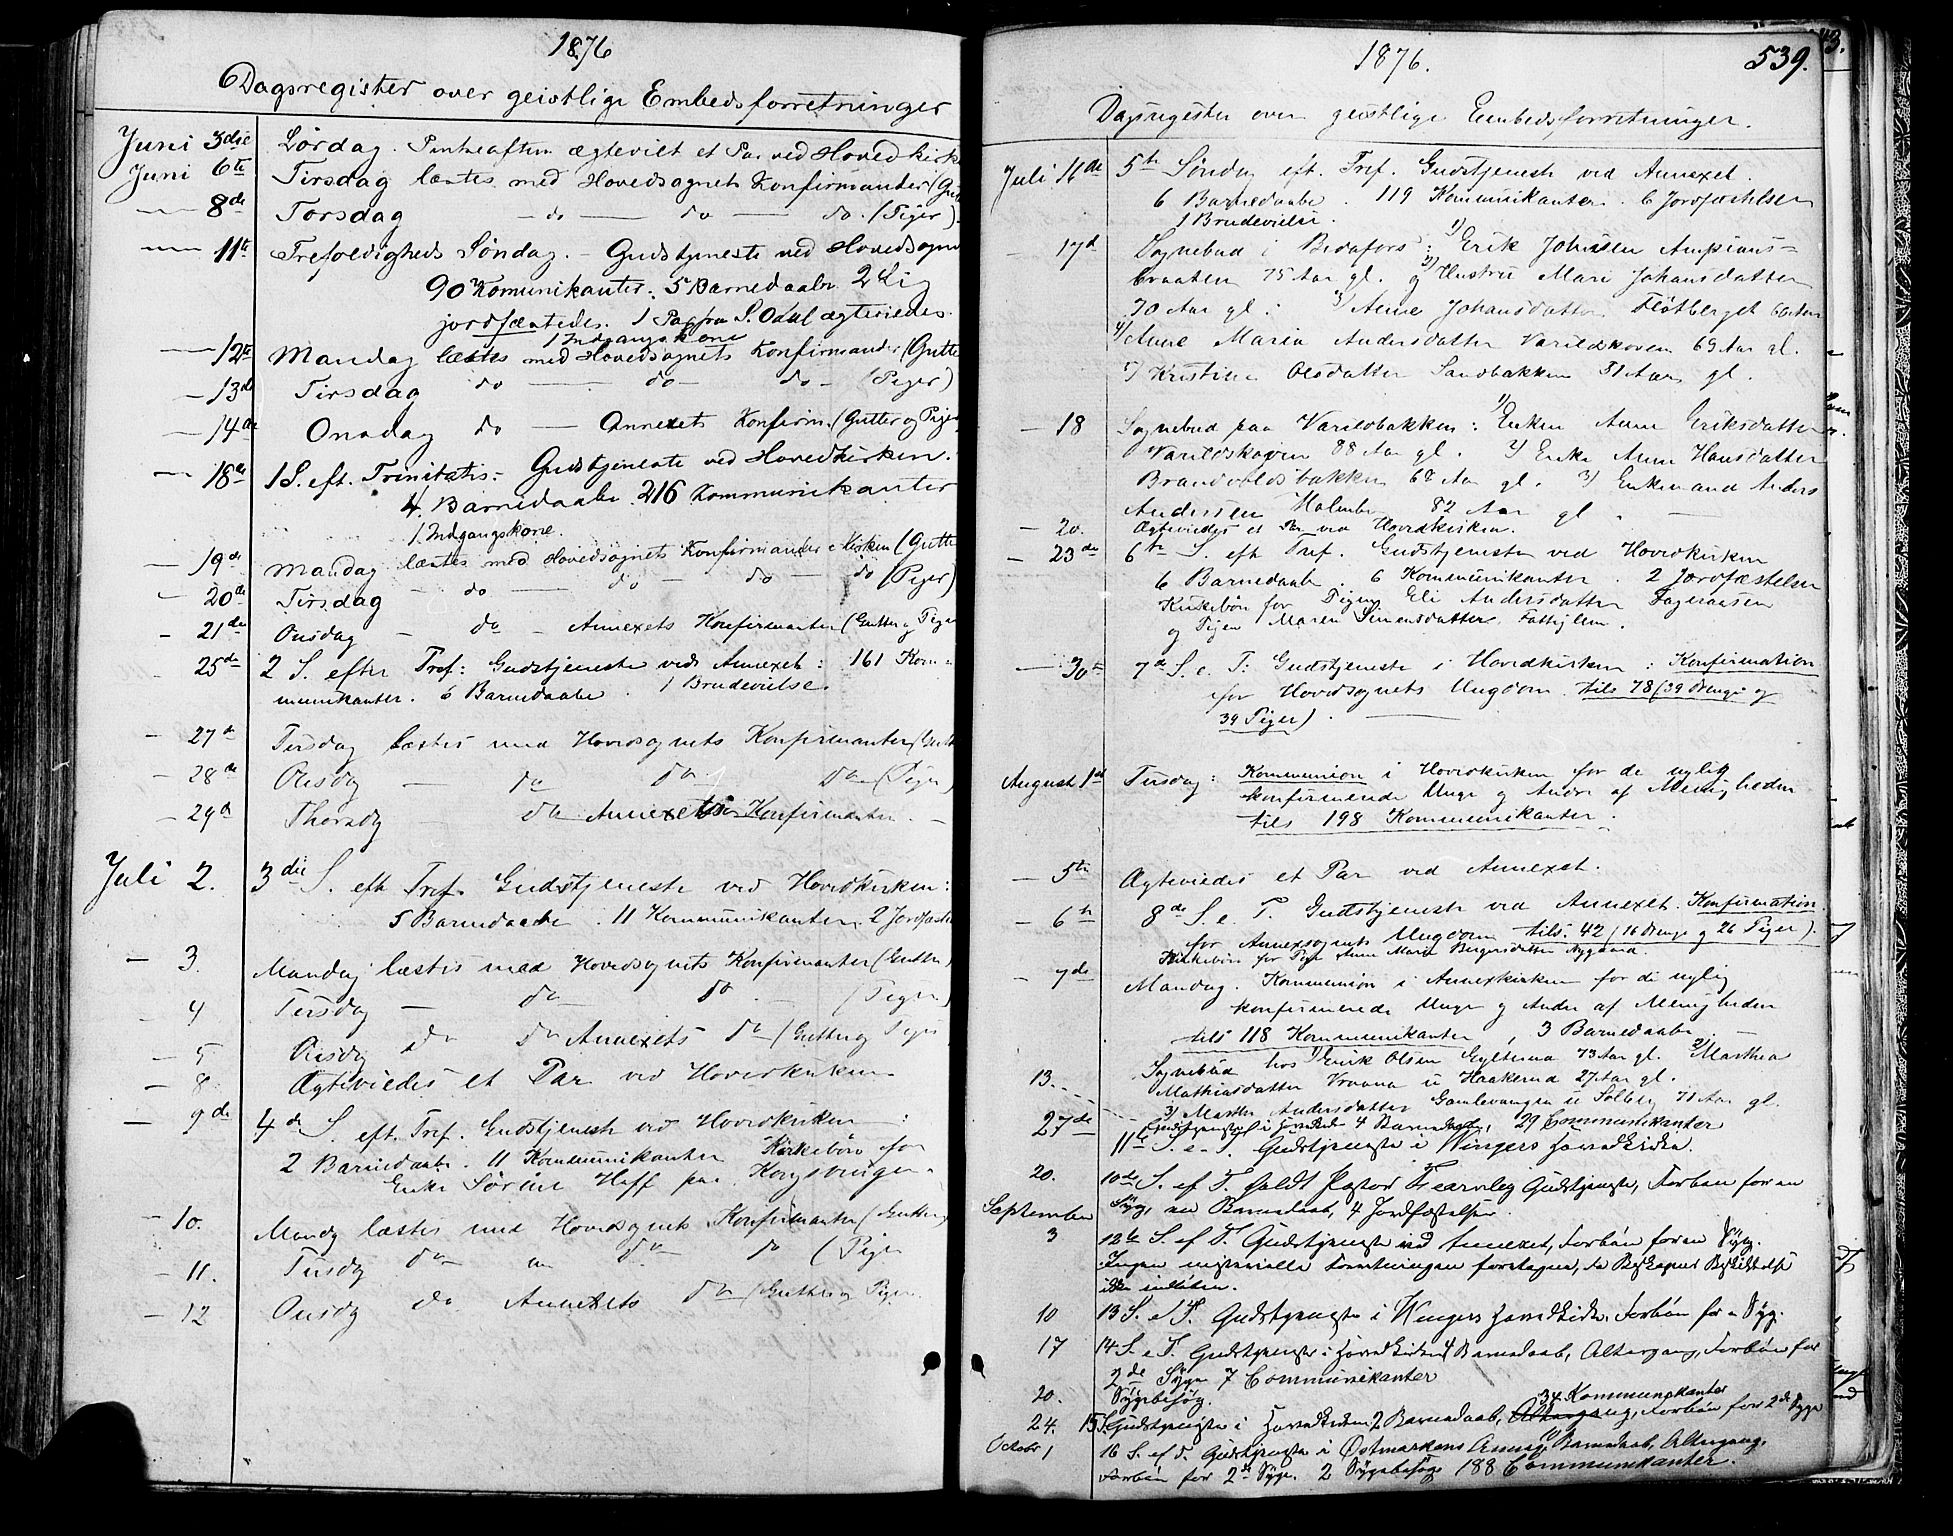 1876
Dagsregister over geistlige Embedsforretninger
Juni 3die Lørdag. Pintseaften ægteviet et Par ved Hovedkirk
Juni 6te Tirsdag læstes med Hovedsognets Konfirmander (Gut
— 8de Torsdag — do — do — do. (Piger)
— 11te Trefoldigheds Søndag. — Gudstjeneste ved Hovedsogne
90 Komunikanter. 5 Barnedaabe 2 Lig
jordfæstedes. 1 Par fra S. Odal ægteviedes.
1 Indgangskone
— 12te Mandag læstes med Hovedsognets Konfirmander (Gutte
— 13de Tirsdag do — do — do — (Piger)
— 14de Onsdag do — Annexets Konfirm. (Gutter og Piger
— 18de 1 S. eft. Trinitatis. Gudstjeneste ved Hovedkirken.
4 Barnedaabe. 216 Kommunikanter
1 Indgangskone.
— 19de Mandag læstes med Hovedsognets Konfirmander i Kirken (Gutte
— 20de Tirsdag — do — do — do — do (Piger)
— 21de Onsdag — do — Annexets Konfirmanter (Gutter og Piger
25de 2 S. efter Tref: Gudstjeneste ved Annexet: 161 Kom-
munikanter. 6 Barnedaabe. 1 Brudevielse.
— 27de Tirsdag læstes med Hovedsognets Konfirmanter (Gutt
— 28de Onsdag — do do do — (Piger)
— 29de Thorsdag — do Annexets Konfirmanter. —
Juli 2. 3die S. eft Tref. Gudstjeneste ved Hovedkirken:
5 Barnedaabe. 11 Kommunikanter. 2 Jordfæste
— 3. Mandag læstes med Hovedsognets Konfirmanter (Gutter)
— 4 Tirsdag — do do — (Piger)
— 5 Onsdag do do Annexets do (Gutter og Piger
— 8 Ægteviedes et Par ved Hovedkirken
— 9de 4de S. eft. Tref. Gudstjeneste ved Hovedkirken:
2 Barnedaabe. 11 Kommunikanter Kirkebøn for
Enke Sørine Hoff paa Kongsvinger.
— 10. Mandag læstes med Hovedsognets Konfirmanter (Gutter)
— 11. Tirsdag do do do (Piger
— 12 Onsdag do Annexets do (Gutter og Piger.
1876.
539.
Dagsregister over geistlige Embedsforretninger.
Juli 16de 5te Søndag eft. Tref. Gudstjeneste ved Annexet.
6 Barnedaabe. 119 Kommunikanter. 6 Jordfæstelser
1 Brudevielse.
— 17de Sognebud i : 1) Erik Johnsen
braaten 75 Aar gl. og 2) Hustru Mari Johansdatter
70 Aar gl: 3) Anne Johansdatter Fløtberget 60 Aar
4) Anne Maria Andersdatter Varildskoven 69 Aar gl.
5) Kristine Olsdatter Sandbakken 51 Aar gl.
— 18 Sognebud paa Varildbakken: 1) Enken Anne Eriksdatter
Varildskoven 88 Aar gl. 2) Enke Anne Hansdatter
Brandvoldsbakken 68 Aar gl. 3) Enkemand Anders
Andersen Holmbo 82 Aar gl.
— 20. Ægteviedes et Par ved Hovedkirken.
— 23de 6te S. eft Tref. Gudstjeneste ved Hovedkirken
6 Barnedaabe. 6 Kommunikanter. 2 Jordfæstelser
Kirkebøn for Pigen Eli Andersdatter Fageraasen
og Pigen Maren Simensdatter, Fattiglem.
— 30te 7de S. e. T: Gudstjeneste i Hovedkirken: Konfirmation
for Hovedsognets Ungdom. tils 78 (39 Drenge og
39 Piger).
August 1ste Tirsdag: Kommunion i Hovedkirken for de nylig
konfirmerede Unge og Andre af Menigheden
tils 198 Kommunikanter.
— 5te Ægteviedes et Par ved Annexet.
— 6te 8de S. e. T. Gudstjeneste ved Annexet. Konfirmation
for Annexsognets Ungdom tils. 42 (16 Drenge og 26 Piger).
Kirkebøn for Pige Anne Marie Bergersdatter Nygaard.
— 7de Mandag. Kommunion i Annexkirken for de nylig
konfirmerede Unge og Andre af Menigheden
tils 118 Kommunikanter, 3 Barnedaabe. —
13. Sognebud hos 1) Erik Olsen 73 Aar gl. 2) Marthea
Mathiasdatter u Haakerud 27 Aar gl.
3) Marthe Andersdatter Gamlevangen u Solberg 71 Aar gl.
27de Gudstjeneste i Hovedk. 4 Barnedaab, 29 Communikanter
11te S. e. T. Gudstjeneste i Wingers Hovedkirke.
20. 10de S. ef T. holdt Pastor Fearnley Gudstjeneste, Forbøn for en
Syg, en Barnedaab, 4 Jordfæstelser.
September
3 12te S. ef T. Gudstjeneste ved Annexet, Forbøn for en Syg.
Ingen ministerielle Forretninger foretagen, da Biskopens Beskikkelse
ikke indløben.
10 13 S. e T. Gudstjeneste i Wingers Hovedkirke, Forbøn for en Syg.
17 14 S. e T. Gudstjeneste i Hovedkirken 4 Barnedaab, Altergang, Forbøn for
2de Syge 7 Communikanter
20. Sygebesøg.
34 Kommunikanter
24. 15 S. Gudstjeneste i Hovedkirken 2 Barnedaab, Altergang, Forbøn for 2de Syge
October 1 16 S. ef T. Gudstjeneste i Østmarkens Annex, Barnedaab, Altergang.
Forbøn for 2de Syge. 2 Sygebesøg 188 Communikanter.